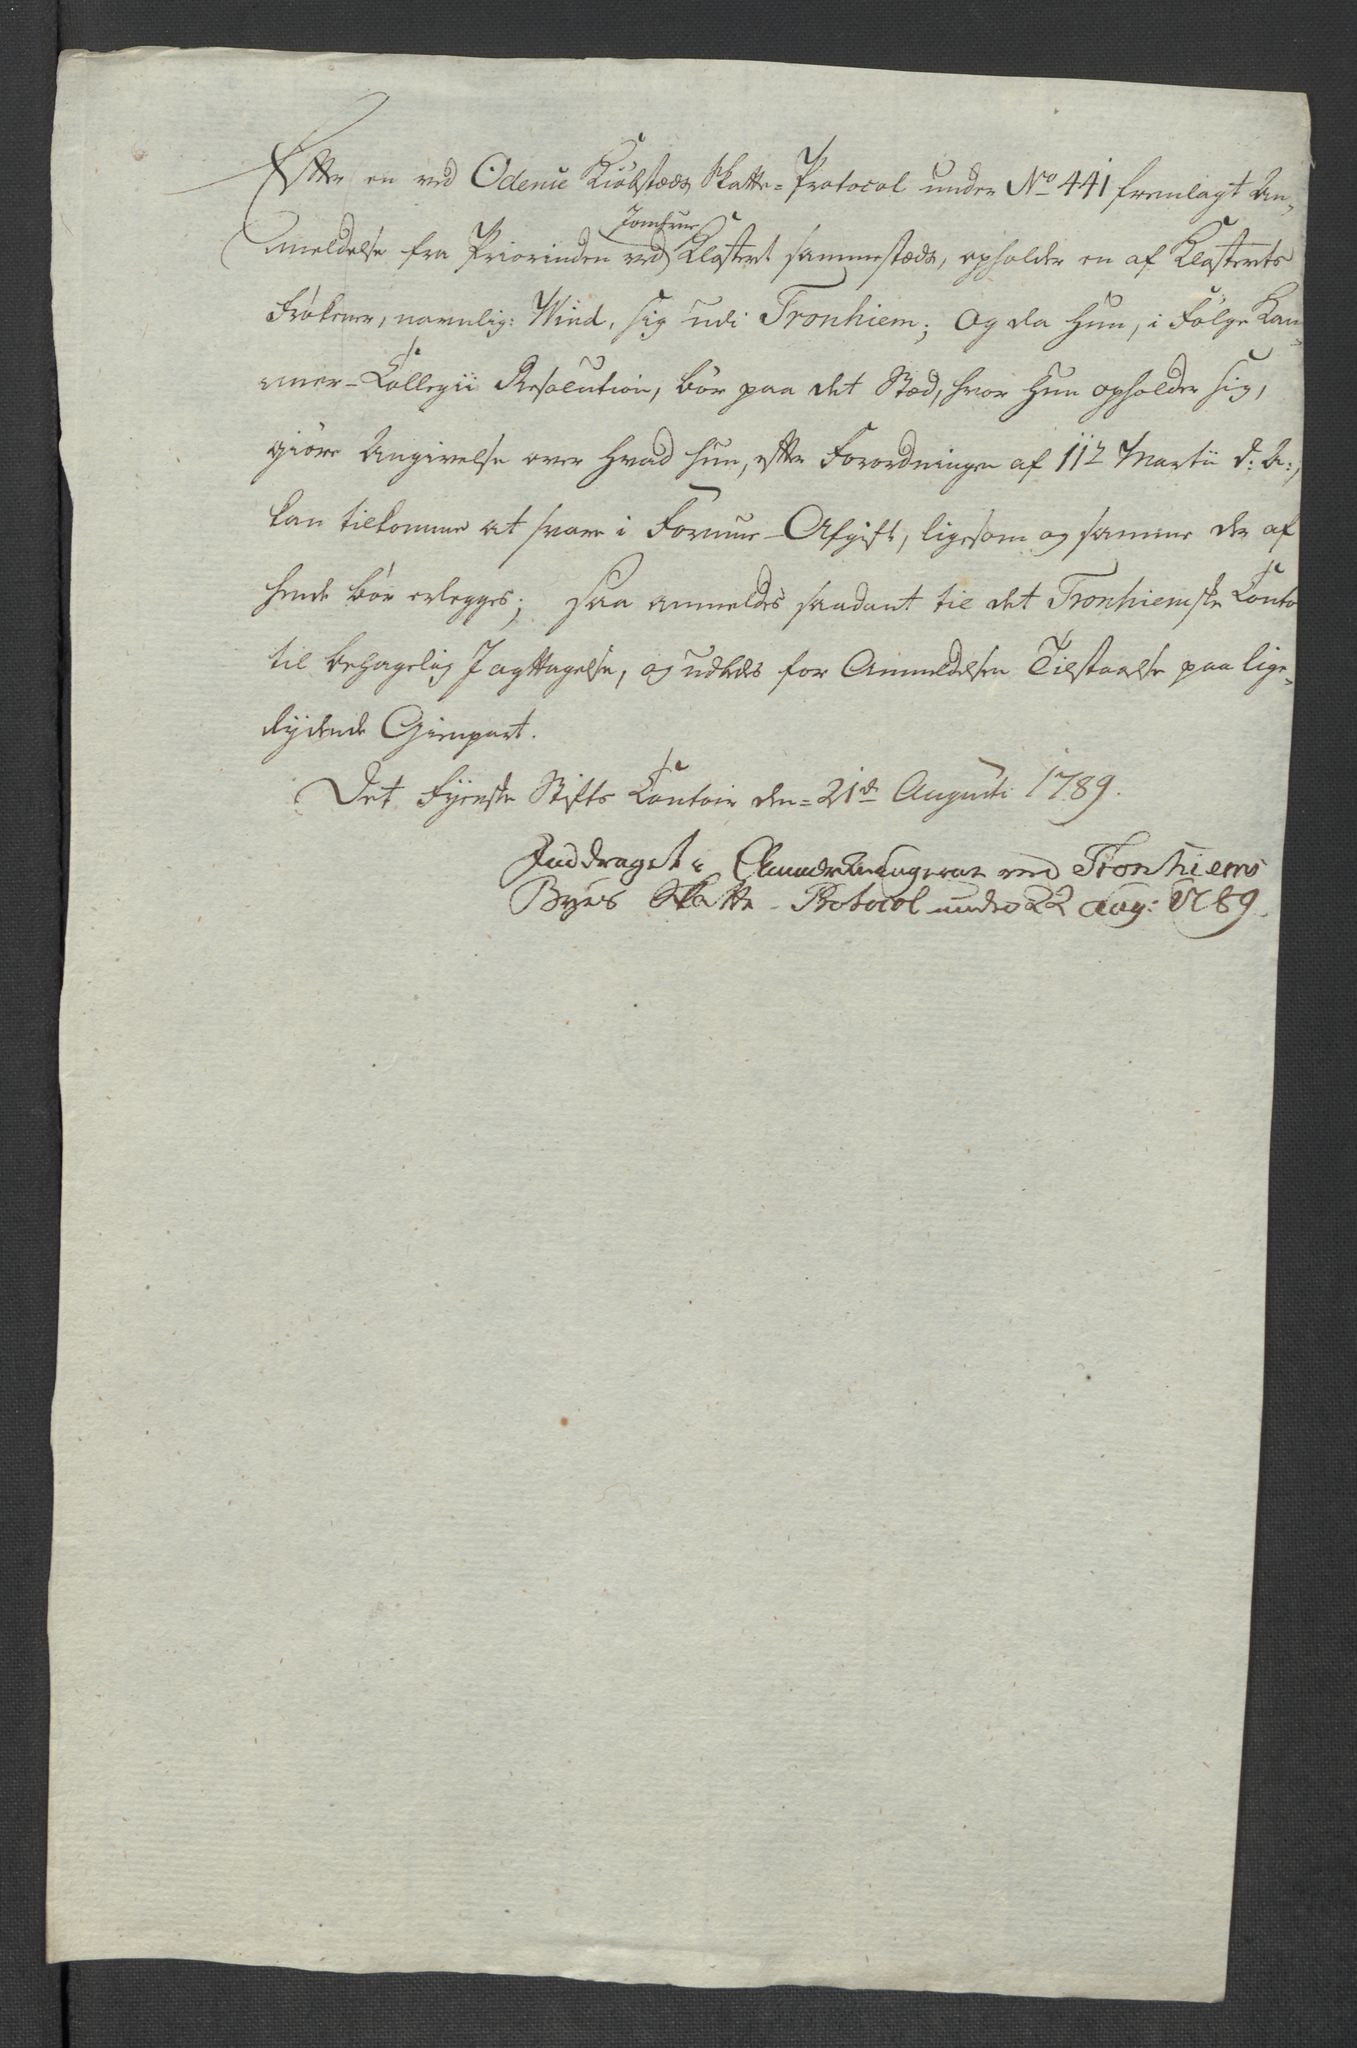 Efter en ved Odense Kiöbstæds Skatte-Protocol under No 441 fremlagt An-
meldelse fra Priorinden ved Jomfrue Klosteret sammestæds, opholder en af Klosterets
Frökener, navnlig: Wind, sig udi Tronhiem; Og da Hun, i Fölge Kam-
mer-Collegii Resolution, bör paa det Stæd, hvor Hun opholder sig,
giöre Angivelse over hvad hun, efter Forordningen af 11te Martii d: A:,
kan tilkomme at svare i Formue-Afgift, ligesom og samme der af
hende bör erlegges; saa anmeldes saadant til det Tronhiemske Contoir
til behagelig Jagttagelse, og udbedes for Anmeldelsen Tilstaaelse paa lige-
lydende Gienpart.
Det Fyenske Stifts Contoir den 21de Augusti 1789.
Inddraget ved Tronhiems
Byes Skatte-Protocol under 22 Aug: 1789.